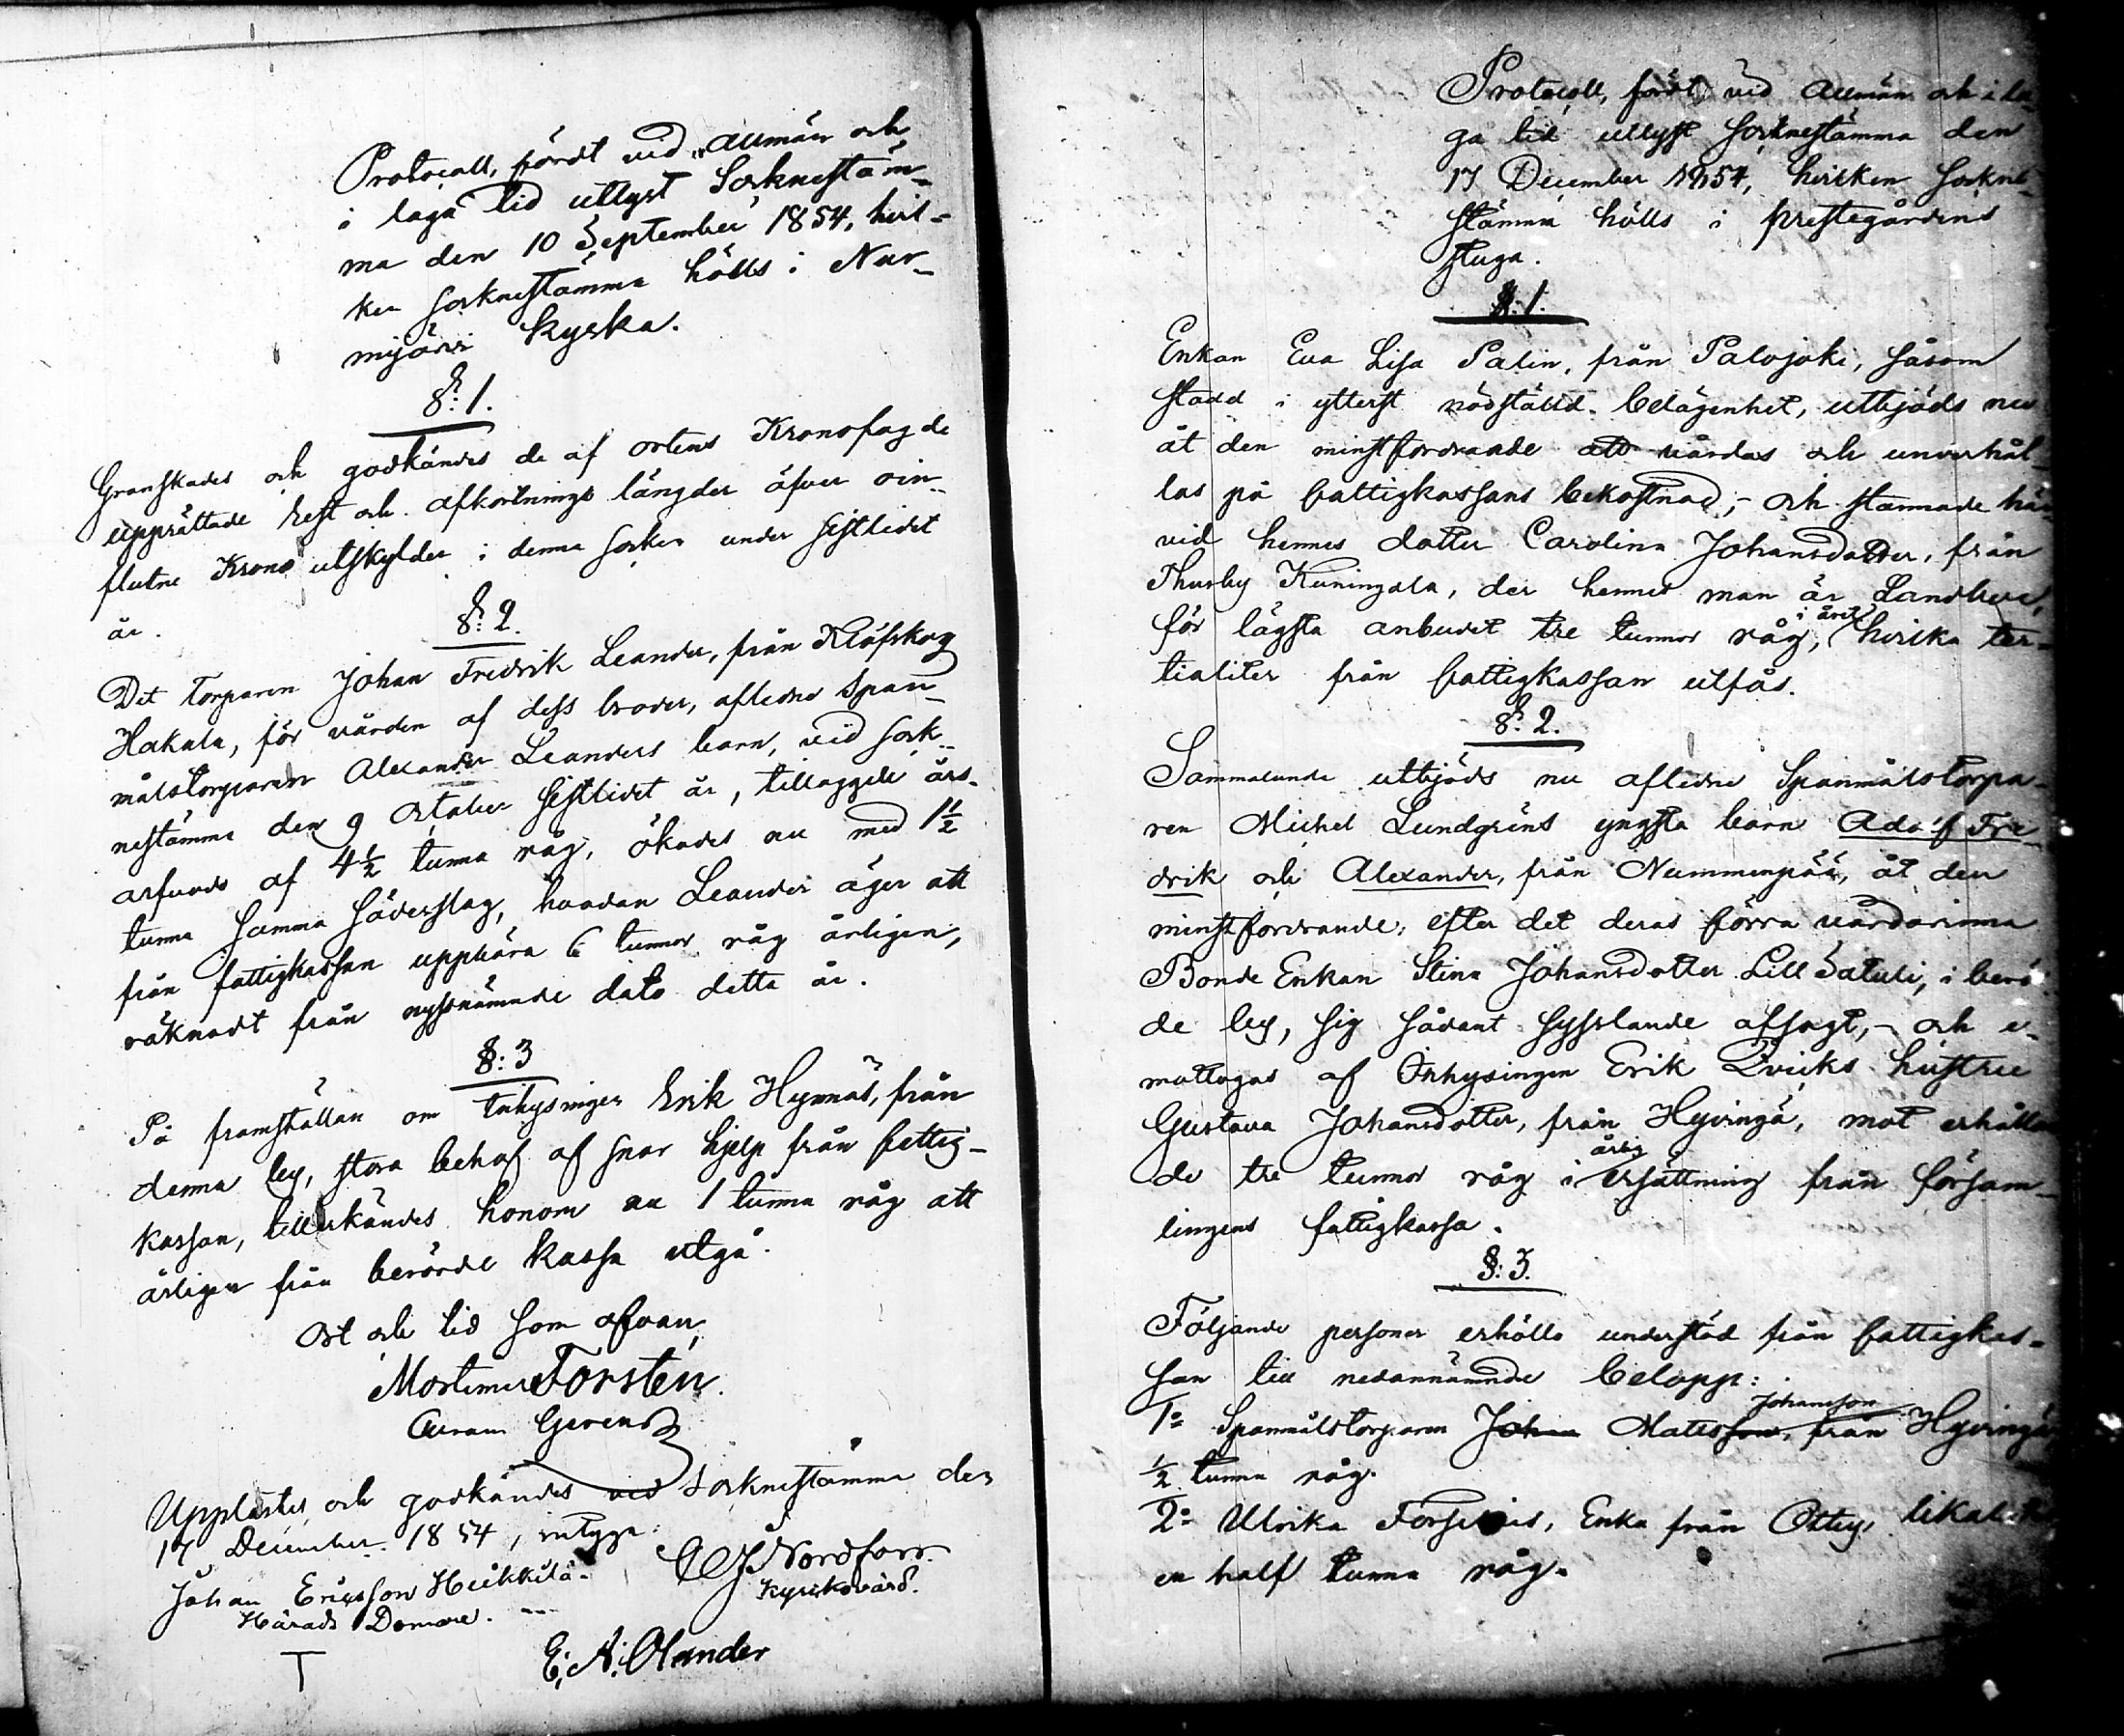 Protocoll, fördt vid allmän och
i laga tid utlyst Socknestäm-
ma den 10 September 1854, hvil-
ken socknestämma hölls i Nur-
mijärvi kyrka.
§: 1.
Granskades och godkändes de af ortens Kronofogde
upprättade rest och afkortnings längder öfver oin-
flutne Krono utskylder i denna socken under sistlidet
år.
§: 2.
Det Torparen Johan Fredrik Leander, från Klöfskog
Hakala, för vården af dess broder, aflidne Span-
målstorparen Alexander Leanders barn, vid sock-
nestämma den 9 October sistlidet år, tillaggde års-
arfvode af 4½ tunna råg, ökades nu med 1½
tunna samma sädesslag, hvadan Leander äger att
från fattigkassan uppbära 6 tunnor råg årligen,
räknadt från nyssnämnde dato detta år.
§: 3
På framställan om Inhysingen Erik Hymnäs, från
denna by, stora behof af snar hjelp från fattig-
kassan, tillerkändes honom nu 1 tunna råg att
årligen från berörde kassa utgå.
Ort och tid som ofvan,
Mortimer Forstén.
Upplästes och godkändes vid Socknestämma den
17 December 1854, intyga:
Johan Ericsson Heikkilä.
Härads Domare.
Nordfors
Kyrkovärd.
E. A. Olander
Protocoll, fördt vid allmän och i la-
ga tid utlyst socknestämma den
17 December 1854, hvilken sockne-
stämma hölls i prestegårdens
stuga.
§: 1.
Enkan Eva Lisa Palin, från Palojoki, såsom
stadd i ytterst nödstäld belägenhet, utbjöds nu
åt den minstfordrande att vårdas och underhål-
las på fattigkassans bekostnad; - och stannade här-
vid hennes dotter Carolina Johansdotter, från
Thusby Kuningala, der hennes man är Landbonde,
för lägsta anbudet tre tunnor råg, i året hvilka ter-
tialiter från fattigkassan utfås.
§: 2.
Sammalunda utbjöds nu aflidne Spanmålstorpa-
ren Michel Lundgréns yngsta barn Adolf Fre-
drik och Alexander, från Nummenpää, åt den
minstfordrande, efter det deras förra vårdarinna
Bonde Enkan Stina Johansdotter Lill Satuli, i berör-
de by, sig sådant sysslande afsagt, - och e-
mottogos af Inhysingen Erik Qvicks hustru
Gustava Johansdotter, från Hyvingä, mot erhållan-
de tre tunnor råg i årlig ersättning från församlin-
lingens fattigkassa.
§: 3.
Följande personer erhöllo understöd från fattigkas-
san till nedannämnde belopp:
1o Spanmålstorparen Johan Matts Johansson, från Hyvingä
½ tunna råg.
2o Ulrika, Enka från Ottey likaledes
en half tunna råg.